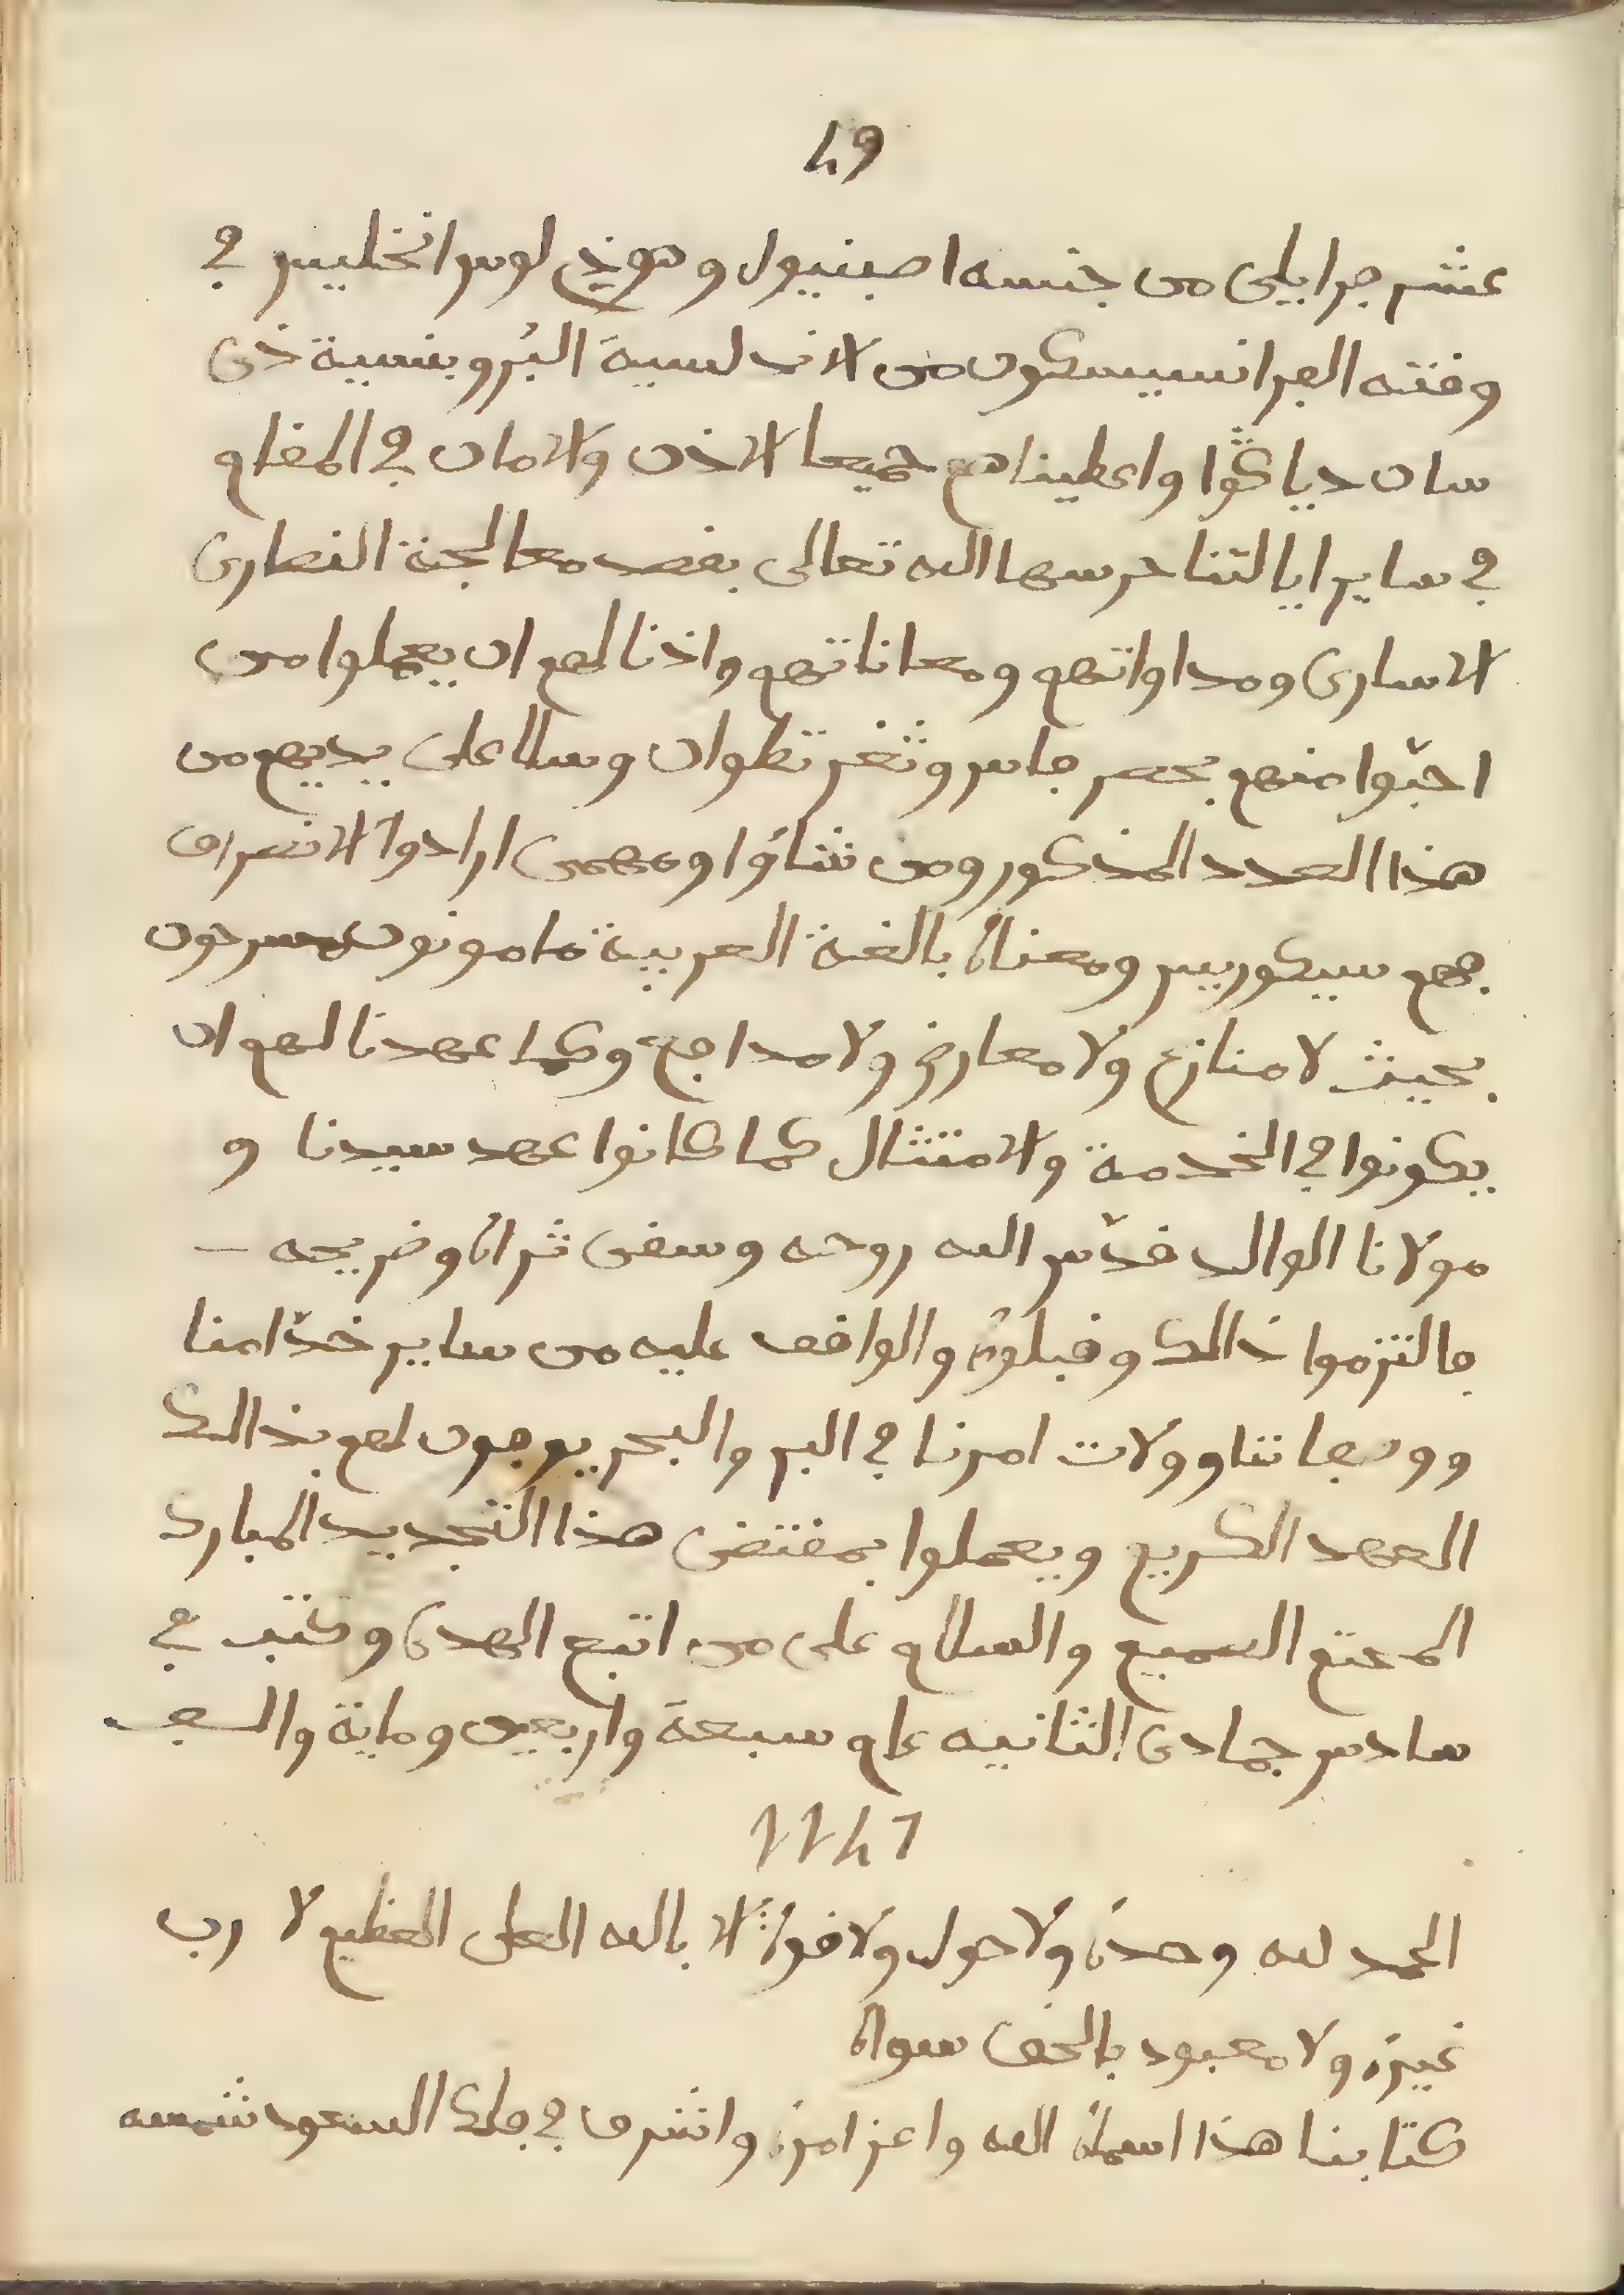 49
عشر جرايلى من جنسه اصبنيول وهوذى لوس انخليس في
وقته الفرانسيسكون من الاندلسية البروبنسية ذى
سان دياكّوا واعطيناهم جميعا الاذن والامان في المقام
في ساير ايالتنا حرسها الله تعالى بقصد معالجة النصارى
الاسارى ومداواتهم ومعاناتهم واذنا لهم ان يعملوا من
احبّوا منهم بحصر فاس وثغر تطوان وسلا على يديهم من
هذا العدد المذكور ومن شاؤا ومهمى ارادوا الانصراف
فهم سيكوريس ومعناه بالغة العربية مامونون مسرحون
بحيث لا منازع ولا معارض ولا مدافع وكما عهدنا لهم ان
يكونوا في الخدمة والامتثال كما كانوا عهد سيدنا و
مولانا الوالد قدّس الله روحه وسقى ثراه وضريحه
فالتزموا ذالك وقبلوه والواقف عليه من ساير خدّامنا
ووصفاننا وولات امرنا في البر والبحر يوفون لهم بذالك
العهد الكريم ويعملوا بمقتضى هذا التجديد المبارك
السميع والسلام على من اتبع الهدى وكتب في
سادس جمادى الثانيه عام سبعة واربعين وماية والف
1147
الحمد لله وحده ولا حول ولا قوة الا بالله العلى العظيم لا رب
غيره ولا معبود بالحق سواه
كتابنا هذا اسماه الله واعز امره واشرف في فلك السعود شمسه